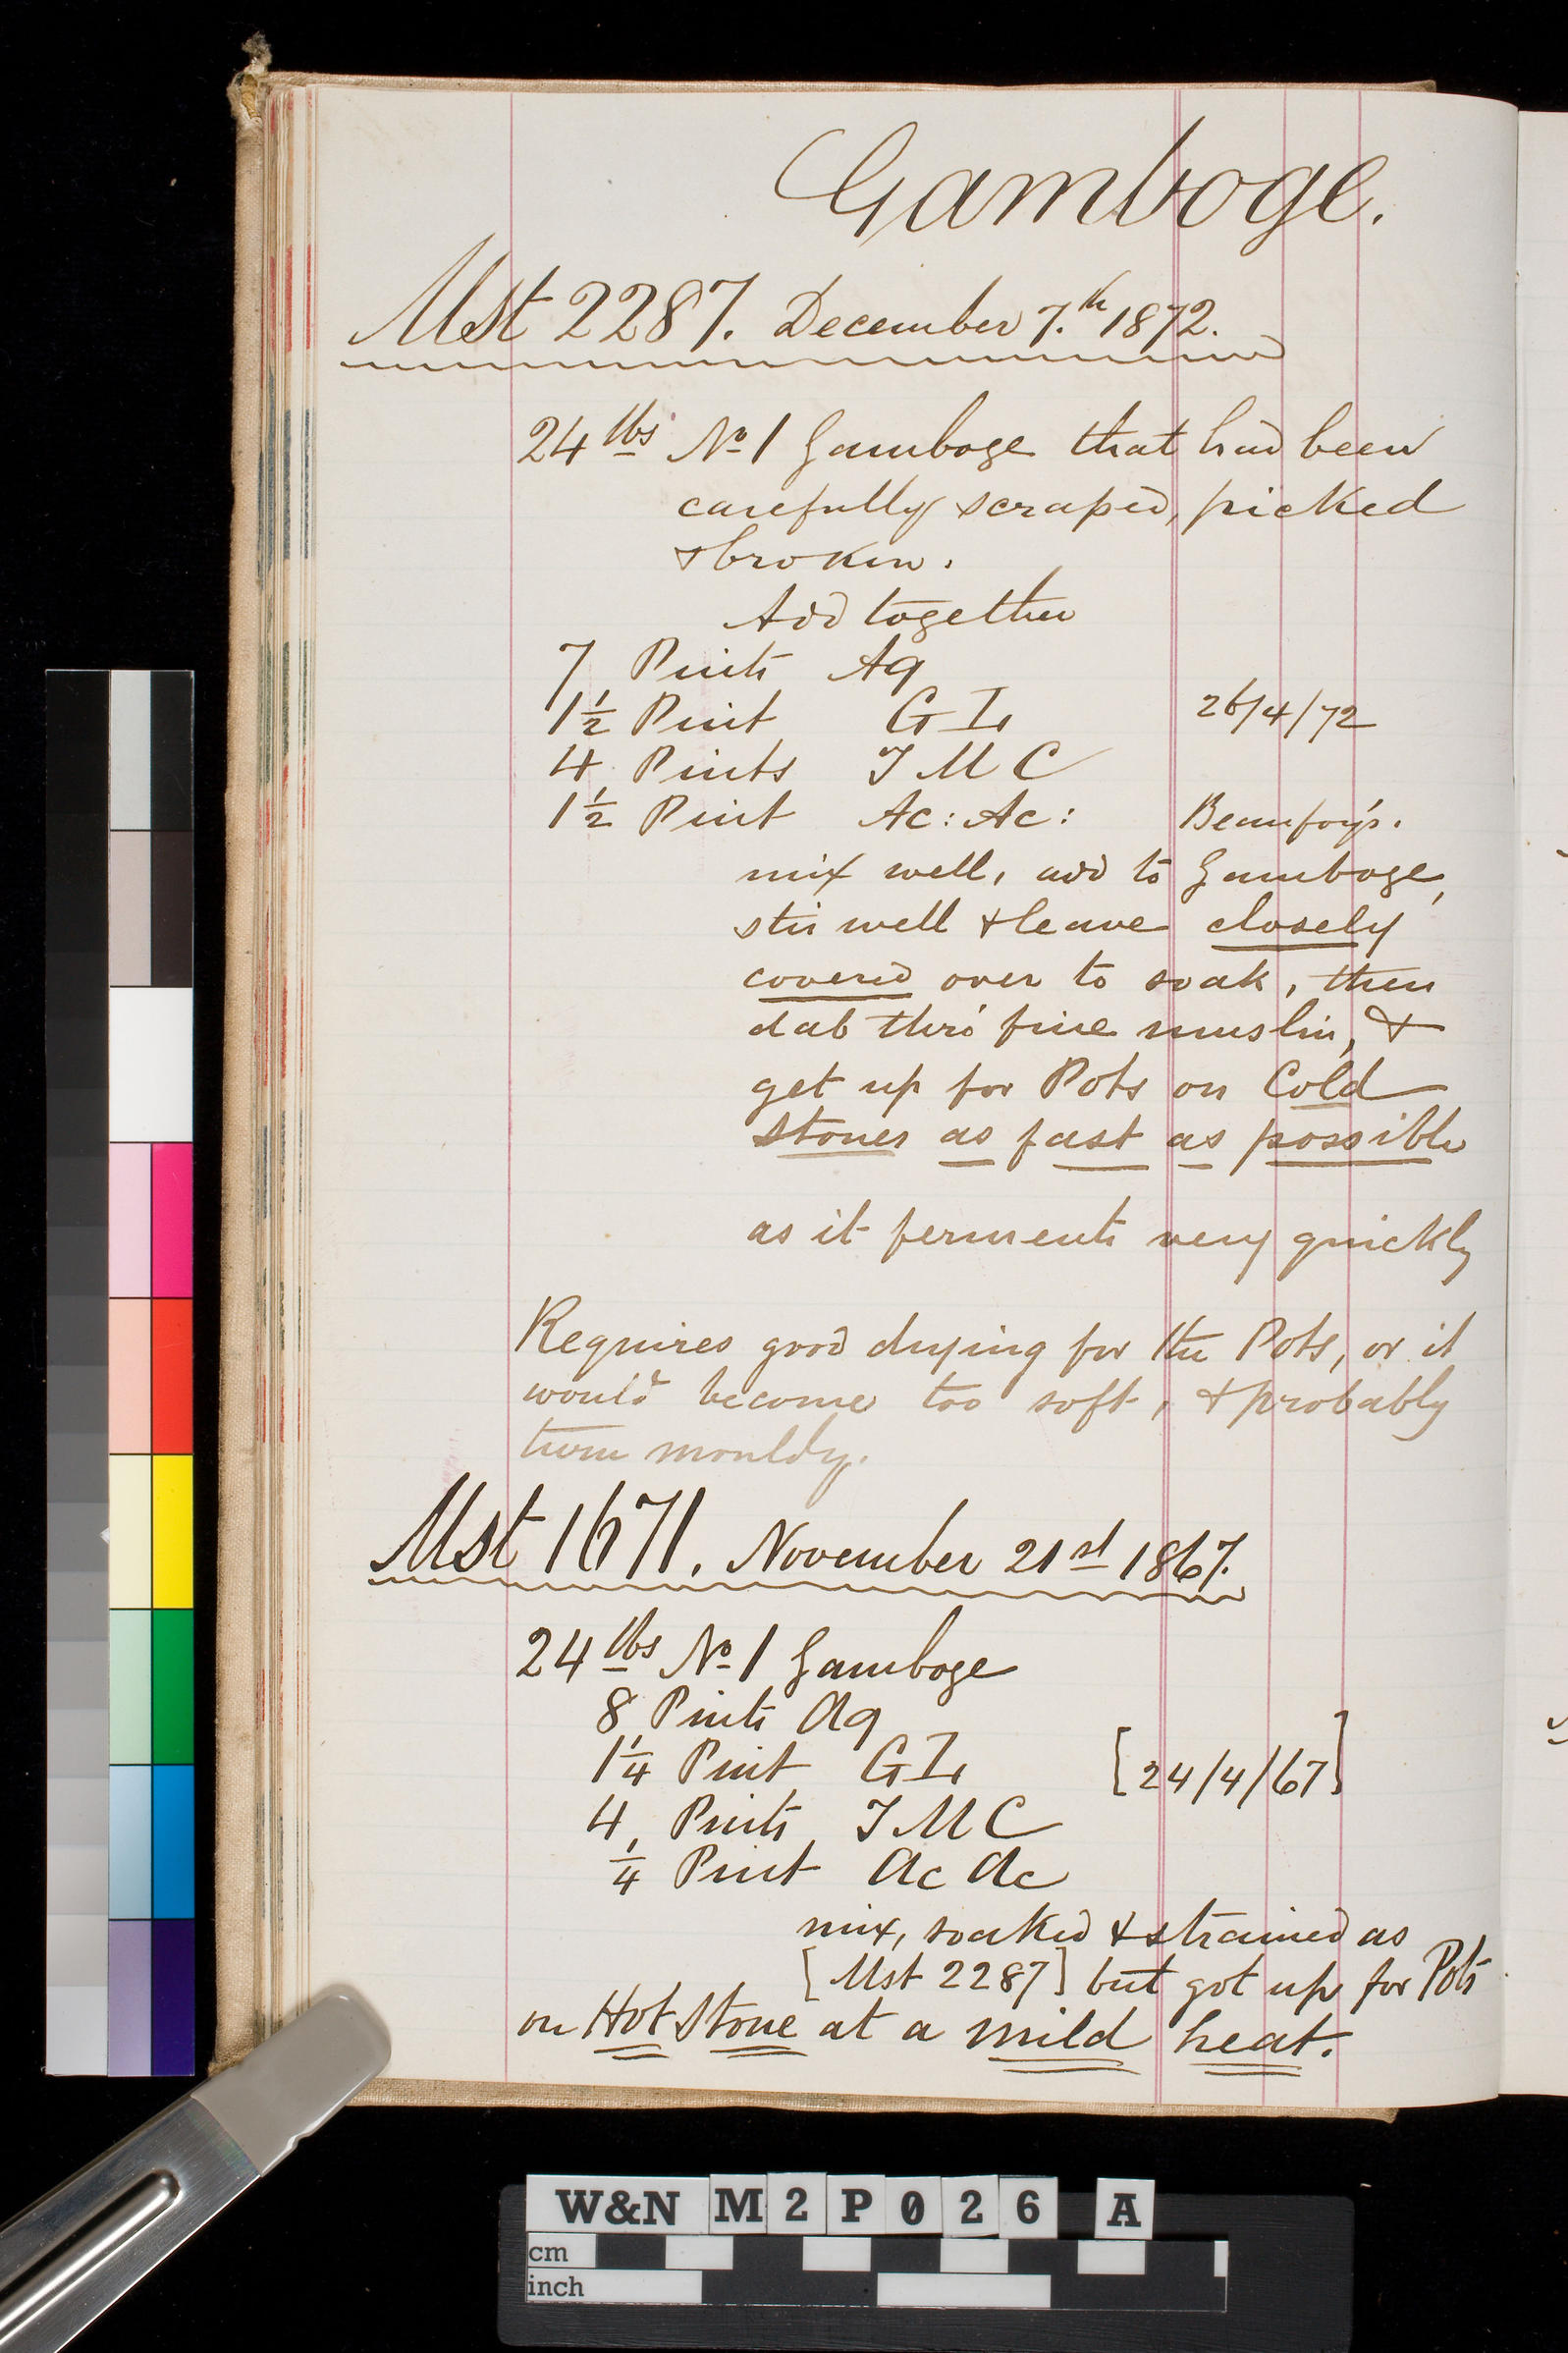 Gamboge.
Mst 2287. December 7.th 1872.
24 lbs No 1 Gamboge that had been
carefully scraped, picked
& broken.
Add together
7 Pints Aq
1½ Pint G I, 26/4/72
4 Pints T M C
1½ Pint Ac: Ac: Beaufoy's.
mix well, add to Gamboge,
stir well & leave closely
covered over to soak, then
dab thro' fine muslin, &
get up for Pots on Cold
Stones as fast as possible
as it ferments very quickly
Requires good drying for the Pots, or it
would become too soft, & probably
turn mouldy.
Mst 1671. November 21st 1867.
24 lbs No 1 Gamboge
8 Pints Aq
1¼ Pint G I, [24/4/67]
4 Pints T M C
¼ Pint Ac Ac
mix, soaked & strained as
[Mst 2287] but got up for Pots
on Hot Stone at a mild heat.
W&N M2P026 A
cm
inch